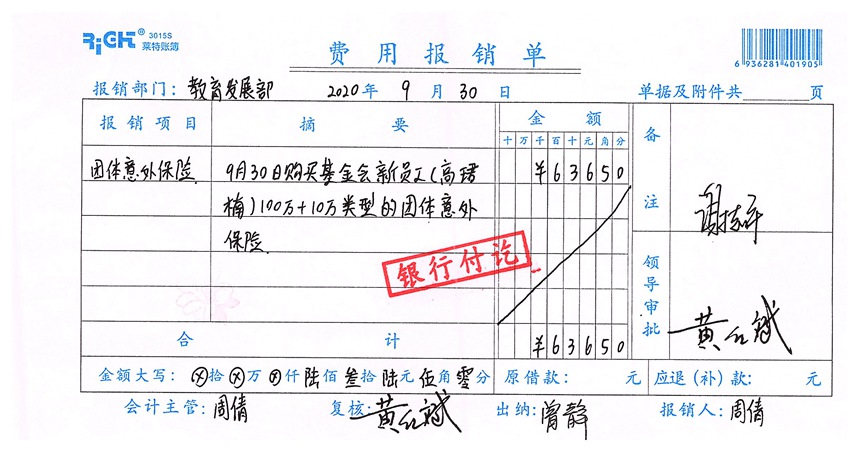 RiGHT® 3015S
莱特账簿
费用报销单
6 936281 401905
报销部门: 教育发展部 2020年 9月 30日 单据及附件共 页
报销项目 摘要 金额 备注
十万千百十元角分
团体意外保险 9月30日购买基金会新员工(高
¥63650
楠)100万+10万类型的团体意外
保险
银行付讫
领导审批
合计 ¥63650
金额大写: ⊗拾⊗万⊗仟陆佰叁拾陆元伍角零分 原借款: 元 应退(补)款: 元
会计主管: 周倩 复核: 黄红斌 出纳: 曾静 报销人: 周倩